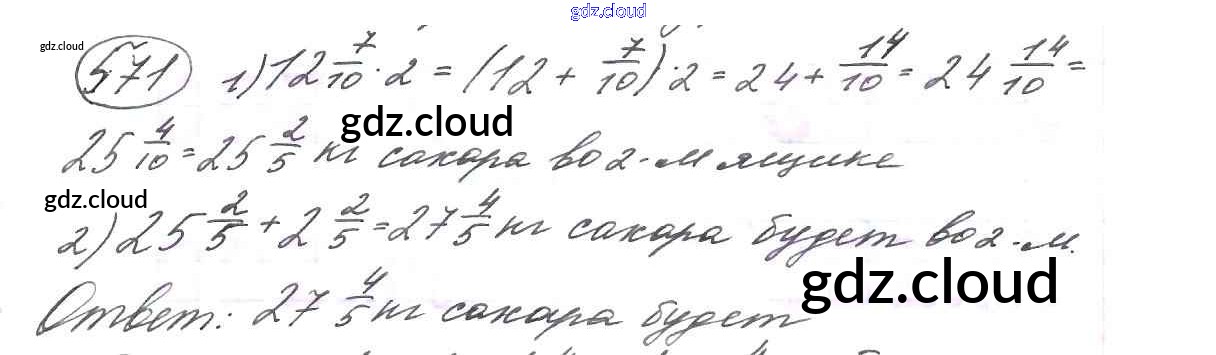 gdz.cloud
gdz.cloud
571 1) 12 7/10 · 2 = (12 + 7/10) · 2 = 24 + 14/10 = 24 14/10 =
gdz.cloud
25 4/10 = 25 2/5 кг сахара во 2-м ящике
gdz.cloud
2) 25 2/5 + 2 2/5 = 27 4/5 кг сахара будет во 2-м.
gdz.cloud
Ответ: 27 4/5 кг сахара будет